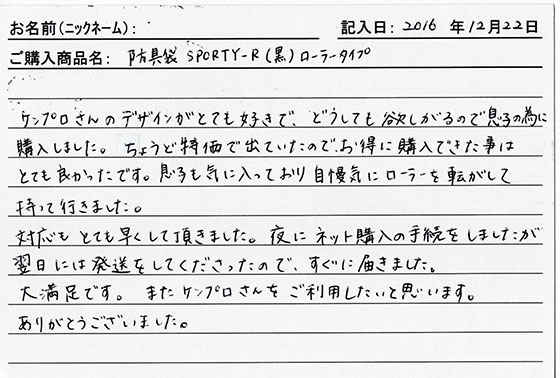 お名前(ニックネーム): 記入日: 2016 年12月22日
ご購入商品名: 防具袋 SPORTY-R(黒)ローラータイプ
ケンプロさんのデザインがとても好きで、どうしても欲しがるので息子の為に
購入しました。ちょうど特価で出ていたのでお得に購入できた事は
とても良かったです。息子も気に入っており自慢気にローラーを転がして
持って行きました。
対応もとても早くして頂きました。夜にネット購入の手続をしましたが
翌日には発送をしてくださったので、すぐに届きました。
大満足です。またケンプロさんをご利用したいと思います。
ありがとうございました。